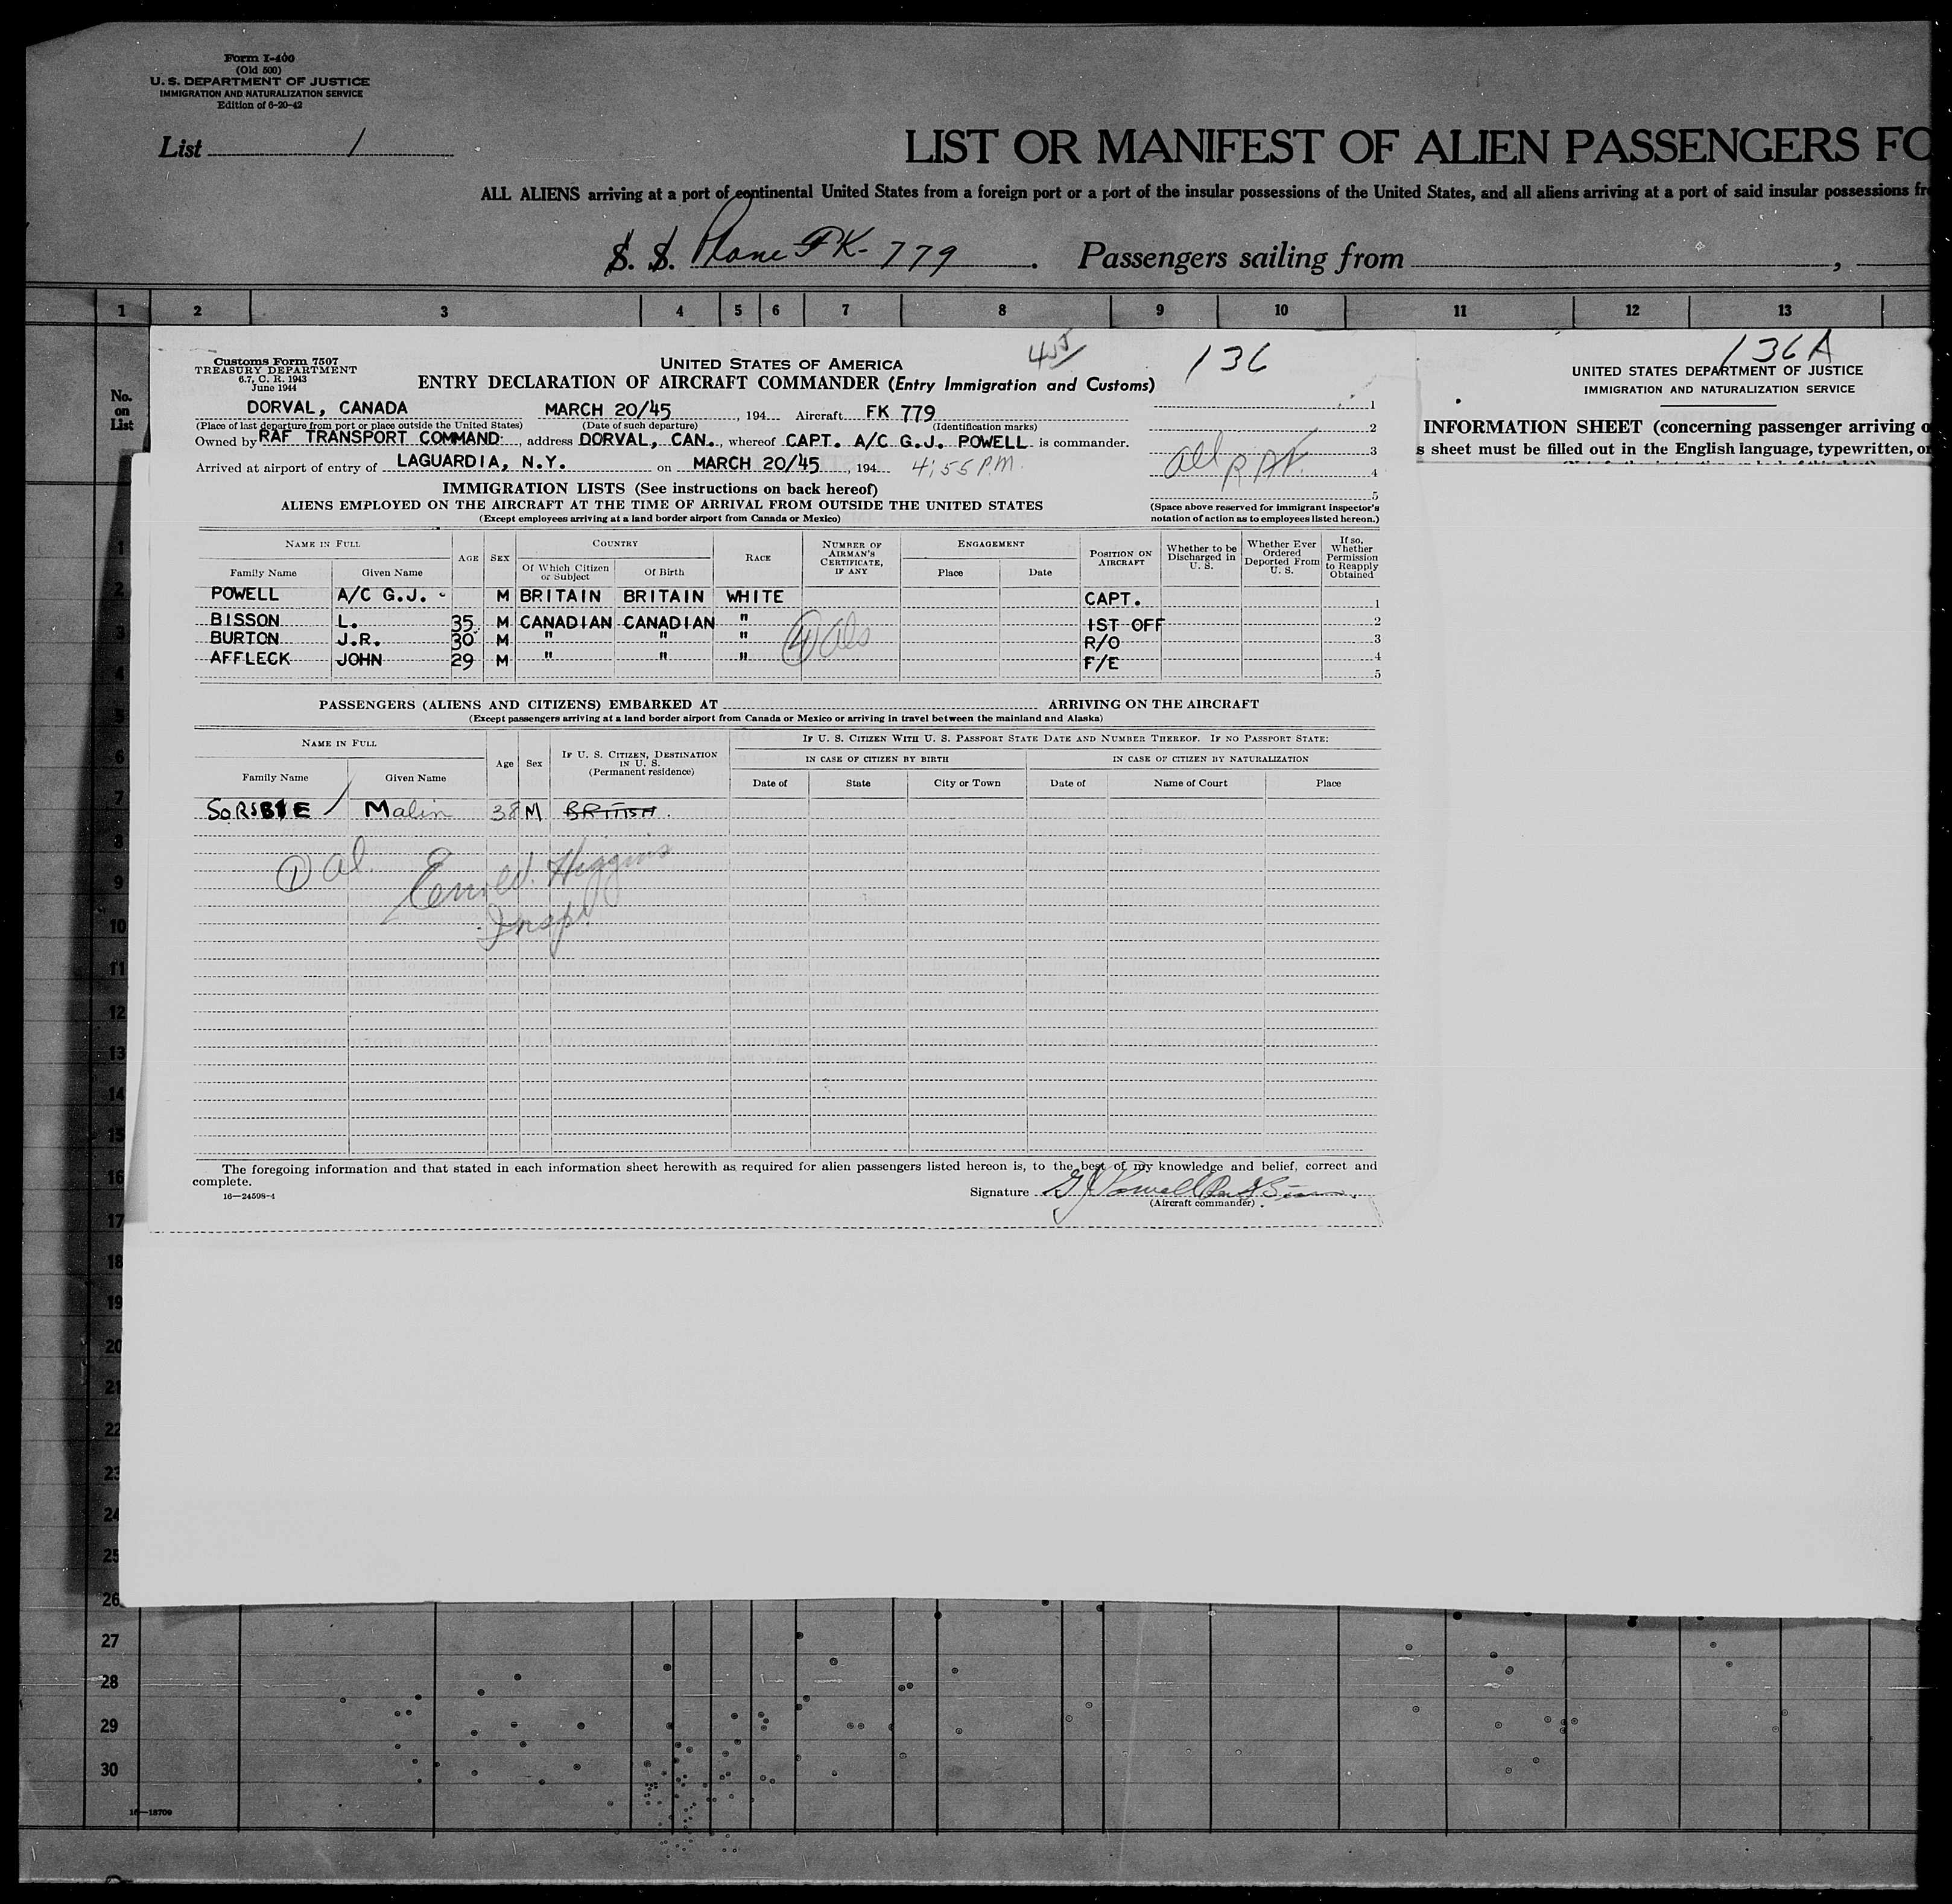 Form I-400
(Old 500)
U. S. DEPARTMENT OF JUSTICE
IMMIGRATION AND NATURALIZATION SERVICE
Edition of 6-20-42
List 1
LIST OR MANIFEST OF ALIEN PASSENGERS FO
ALL ALIENS arriving at a port of continental United States from a foreign port or a port of the insular possessions of the United States, and all aliens arriving at a port of said insular possessions fr
S. S. Plane FK-779. Passengers sailing from ,
1 2 3 4 5 6 7 8 9 10 11 12 13
No. on List
Customs Form 7507
TREASURY DEPARTMENT
6.7, C. R. 1943
June 1944
UNITED STATES OF AMERICA
136
ENTRY DECLARATION OF AIRCRAFT COMMANDER (Entry Immigration and Customs)
DORVAL, CANADA MARCH 20/45, 194 Aircraft FK 779
(Place of last departure from port or place outside the United States) (Date of such departure) (Identification marks)
Owned by RAF TRANSPORT COMMAND, address DORVAL, CAN., whereof CAPT. A/C G.J. POWELL is commander.
Arrived at airport of entry of LAGUARDIA, N.Y. on MARCH 20/45, 194 4:55 P.M.
1
2
3
4
5
All RAF.
(Space above reserved for immigrant inspector's notation of action as to employees listed hereon.)
IMMIGRATION LISTS (See instructions on back hereof)
ALIENS EMPLOYED ON THE AIRCRAFT AT THE TIME OF ARRIVAL FROM OUTSIDE THE UNITED STATES
(Except employees arriving at a land border airport from Canada or Mexico)
NAME IN FULL AGE SEX COUNTRY RACE NUMBER OF AIRMAN'S CERTIFICATE, IF ANY ENGAGEMENT POSITION ON AIRCRAFT Whether to be Discharged in U. S. Whether Ever Ordered Deported From U. S. If so, Whether Permission to Reapply Obtained
Family Name Given Name Of Which Citizen or Subject Of Birth Place Date
POWELL A/C G.J. M BRITAIN BRITAIN WHITE CAPT. 1
BISSON L. 35 M CANADIAN CANADIAN " 1ST OFF 2
BURTON J.R. 30 M " " " R/O 3
AFFLECK JOHN 29 M " " " F/E 4
5
4 Als
PASSENGERS (ALIENS AND CITIZENS) EMBARKED AT ARRIVING ON THE AIRCRAFT
(Except passengers arriving at a land border airport from Canada or Mexico or arriving in travel between the mainland and Alaska)
NAME IN FULL Age Sex IF U. S. CITIZEN, DESTINATION IN U. S. (Permanent residence) IF U. S. CITIZEN WITH U. S. PASSPORT STATE DATE AND NUMBER THEREOF. IF NO PASSPORT STATE:
IN CASE OF CITIZEN BY BIRTH IN CASE OF CITIZEN BY NATURALIZATION
Family Name Given Name Date of State City or Town Date of Name of Court Place
SORSBIE Malin 38 M BRITISH.
1 al.
Higgins
Insp.
The foregoing information and that stated in each information sheet herewith as required for alien passengers listed hereon is, to the best of my knowledge and belief, correct and
complete.
16—24598-4
Signature G J Powell
(Aircraft commander)
136A
UNITED STATES DEPARTMENT OF JUSTICE
IMMIGRATION AND NATURALIZATION SERVICE
INFORMATION SHEET (concerning passenger arriving o
s sheet must be filled out in the English language, typewritten, or
1
2
3
4
5
6
7
8
9
10
11
12
13
14
15
16
17
18
19
20
21
22
23
24
25
26
27
28
29
30
16—18709